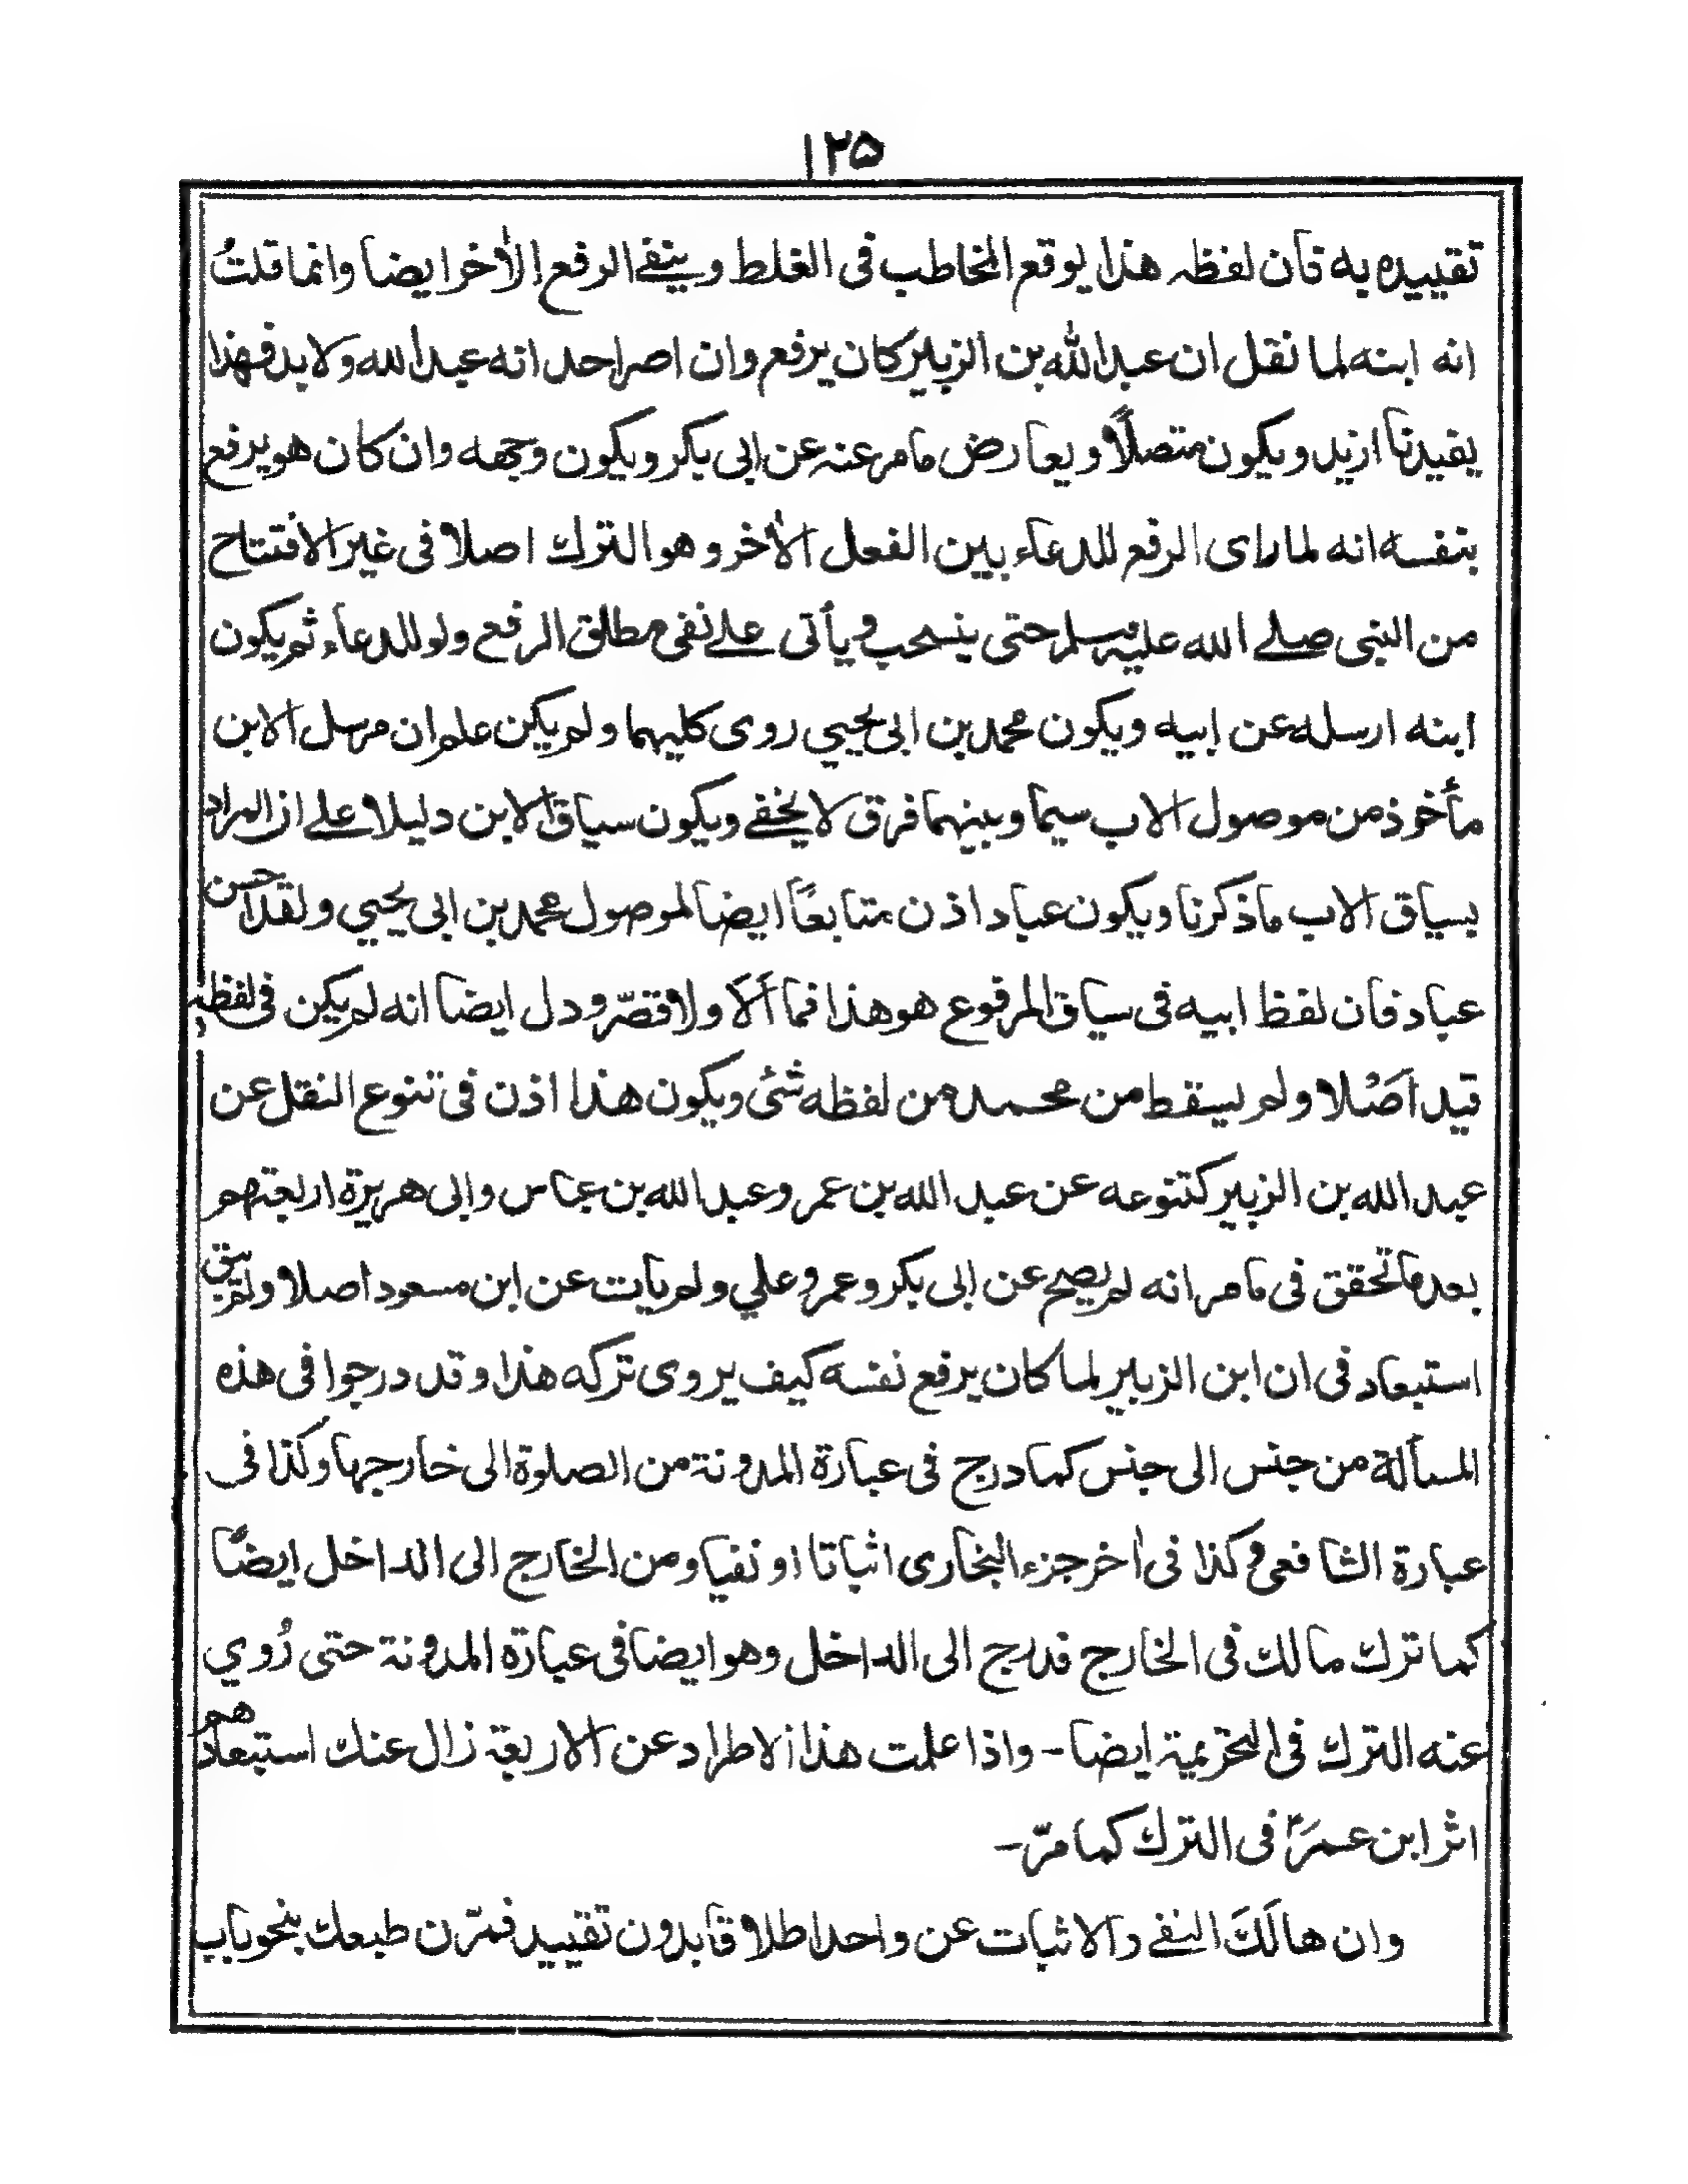 ١٢٥
تقييده به فان لفظه هذا يوقع المخاطب فى الغلط وينفے الرفع الأخر ايضا وانما قلتُ
انه ابنه لما نقل ان عبدالله بن الزبير كان يرفع وان اصراحد انه عبدالله ولا بد فهذا
يفيدنا ازيد ويكون متصلاً ويعارض مامر عنه عن ابى بكر ويكون وجهه وان كان هو يرفع
بنفسه انه لما رأى الرفع للدعاء بين الفعل الأخر وهو الترك اصلا فى غير الافتتاح
من النبى صلے الله عليه وسلم حتى ينسحب ويأتى علے نفى مطلق الرفع ولو للدعاء ثم يكون
ابنه ارسله عن ابيه ويكون محمد بن ابى يحيي روى كليهما ولم يكن علم ان مرسل الابن
مأخوذ من موصول الاب سيما وبينهما فرق لا يخفے ويكون سياق الابن دليلا علے ان المراد
بسياق الاب ماذكرنا ويكون عباد اذن متابعًا ايضا لموصول محمد بن ابى يحيي ولقد احسن
عباد فان لفظ ابيه فى سياق المرفوع هو هذا فما اَلَا ولا قصّر ودل ايضا انه لم يكن فى لفظه
قيد اَصْلا ولم يسقط من محمد من لفظه شئى ويكون هذا اذن فى تنوع النقل عن
عبدالله بن الزبير كتنوعه عن عبد الله بن عمر وعبدالله بن عباس وابى هريرة اربعتهم
بعد ما تحقق فى مامر انه لم يصح عن ابى بكر وعمر وعلي ولم يات عن ابن مسعود اصلا ولم يبق
استبعاد فى ان ابن الزبير لما كان يرفع نفسه كيف يروى تركه هذا وقد درجوا فى هذه
المسألة من جنس الى جنس كما درج فى عبارة المدونة من الصلوة الى خارجها وكذا فى
عبارة الشافعى وكذا فى اٰخر جزء البخارى اثباتا او نفيا ومن الخارج الى الداخل ايضًا
كما ترك مالك فى الخارج قدرج الى الداخل وهو ايضا فى عبارة المدونة حتى رُوي
عنه الترك فى التحريمية ايضا - واذا علمت هذا الاطراد عن الاربعة زال عنك استبعادهم
اثر ابن عمرؓ فى الترك كما مرّ -
وان هالَكَ النفے والاثبات عن واحد اطلاقا بدون تقييد فمرّن طبعك بنحو باب